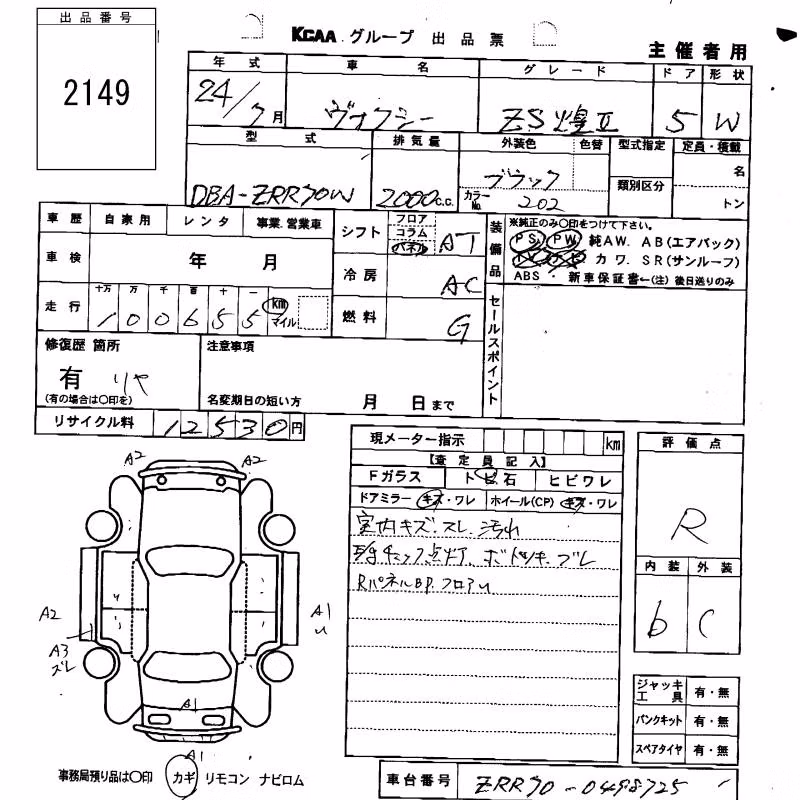 出品番号
2149
KCAA グループ 出品票
主催者用
年式 車名 グレード ドア 形状
24/7月 ヴォクシー ZS煌Ⅱ 5 W
型式 排気量 外装色 色替 型式指定 定員・積載
DBA-ZRR70W 2000c.c. ブラック 類別区分 名
カラーNo. 202 トン
車歴 自家用 レンタ 事業.営業車
車検 年 月
走行 十万 万 千 百 十 一
100655 km マイル
シフト フロア コラム パネル AT
冷房 AC
燃料 G
装備品
※純正のみ〇印をつけて下さい。
PS PW 純AW. AB(エアバック)
カワ. SR(サンルーフ)
ABS 新車保証書←(注)後日送りのみ
セールスポイント
修復歴 箇所
有 リヤ
(有の場合は〇印を)
注意事項
名変期日の短い方 月 日まで
リサイクル料 12530円
現メーター指示 km
【査定員記入】
Fガラス トビ石 ヒビワレ
ドアミラー キズ・ワレ ホイール(CP) キズ・ワレ
室内キズ.スレ.汚れ
RパネルBP.フロアU
評価点
R
内装 外装
b C
A2 A2
A2
A3
ズレ
A1
U
A1
A1
ジャッキ工具 有・無
パンクキット 有・無
スペアタイヤ 有・無
事務局預り品は〇印 カギ リモコン ナビロム
車台番号 ZRR70-0498725